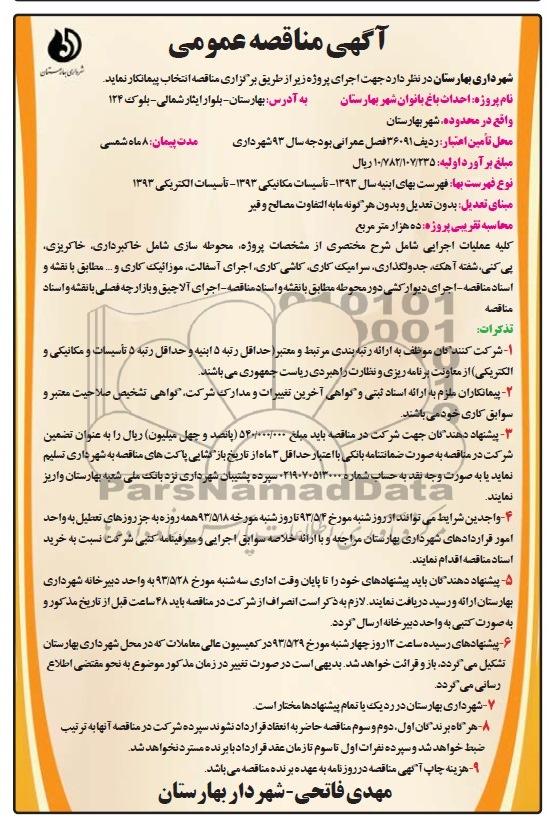 آگهی مناقصه عمومی
شهرداری بهارستان
شهرداری بهارستان در نظر دارد جهت اجرای پروژه زیر از طریق برگزاری مناقصه انتخاب پیمانکار نماید.
نام پروژه: احداث باغ بانوان شهر بهارستان به آدرس: بهارستان-بلوار ایثار شمالی-بلوک ۱۲۴
واقع در محدوده، شهر بهارستان
محل تأمین اعتبار: ردیف ۳۶۰۹۱ فصل عمرانی بودجه سال ۹۳ شهرداری مدت پیمان: ۸ ماه شمسی
مبلغ برآورد اولیه: ۱۰/۷۸۲/۱۰۷/۲۳۵ ریال
نوع فهرست بها: فهرست بهای ابنیه سال ۱۳۹۳- تأسیسات مکانیکی ۱۳۹۳- تأسیسات الکتریکی ۱۳۹۳
مبنای تعدیل: بدون تعدیل و بدون هر گونه مابه التفاوت مصالح و قیر
محاسبه تقریبی پروژه: ده هزار متر مربع
کلیه عملیات اجرایی شامل شرح مختصری از مشخصات پروژه، محوطه سازی شامل خاکبرداری، خاکریزی،
پی کنی، شفته آهک، جدولگذاری، سرامیک کاری، کاشی کاری، اجرای آسفالت، موزائیک کاری و ... مطابق با نقشه و
اسناد مناقصه -اجرای دیوار کشی دور محوطه مطابق با نقشه و اسناد مناقصه -اجرای آلاچیق و بازارچه فصلی با نقشه و اسناد
مناقصه
تذکرات:
۱- شرکت کنندگان موظف به ارائه رتبه بندی مرتبط و معتبر (حداقل رتبه ۵ ابنیه و حداقل رتبه ۵ تأسیسات و مکانیکی و
الکتریکی) از معاونت برنامه ریزی و نظارت راهبردی ریاست جمهوری می باشند.
۲- پیمانکاران ملزم به ارائه اسناد ثبتی و گواهی آخرین تغییرات و مدارک شرکت، گواهی تشخیص صلاحیت معتبر و
سوابق کاری خود می باشند.
۳- پیشنهاد دهندگان جهت شرکت در مناقصه باید مبلغ ۵۴۰/۰۰۰/۰۰۰ (پانصد و چهل میلیون) ریال را به عنوان تضمین
شرکت در مناقصه به صورت ضمانتنامه بانکی با اعتبار حداقل ۳ ماه از تاریخ بازگشایی پاکت های مناقصه به شهرداری تسلیم
نماید یا به صورت وجه نقد به حساب شماره ۰۲۱۹۰۷۰۵۱۳۰۰۰ سپرده پشتیبان شهرداری نزد بانک ملی شعبه بهارستان واریز
نمایند.
ParsNamadData
۴- واجدین شرایط می توانند از روز شنبه مورخ ۹۳/۵/۴ تا روز شنبه مورخه ۹۳/۵/۱۸ همه روزه به جز روزهای تعطیل به واحد
امور قراردادهای شهرداری بهارستان مراجعه و با ارائه خلاصه سوابق اجرایی و معرفینامه کتبی شرکت نسبت به خرید
اسناد مناقصه اقدام نمایند.
۵- پیشنهاد دهندگان باید پیشنهادهای خود را تا پایان وقت اداری سه شنبه مورخ ۹۳/۵/۲۸ به واحد دبیرخانه شهرداری
بهارستان ارائه و رسید دریافت نمایند. لازم به ذکر است انصراف از شرکت در مناقصه باید ۴۸ ساعت قبل از تاریخ مذکور و
به صورت کتبی به واحد دبیرخانه ارسال گردد.
۶- پیشنهادهای رسیده ساعت ۱۲ روز چهارشنبه مورخ ۹۳/۵/۲۹ در کمیسیون عالی معاملات که در محل شهرداری بهارستان
تشکیل می گردد، باز و قرائت خواهد شد. بدیهی است در صورت تغییر در زمان مذکور موضوع به نحو مقتضی اطلاع
رسانی می گردد.
۷-شهرداری بهارستان در رد یک یا تمام پیشنهادها مختار است.
۸- هر گاه برندگان اول، دوم و سوم مناقصه حاضر به انعقاد قرارداد نشوند سپرده شرکت در مناقصه آنها به ترتیب
ضبط خواهد شد و سپرده نفرات اول تا سوم تا زمان عقد قرارداد با برنده مسترد نخواهد شد.
۹- هزینه چاپ آگهی مناقصه در روزنامه به عهده برنده مناقصه می باشد.
مهدی فاتحی-شهردار بهارستان